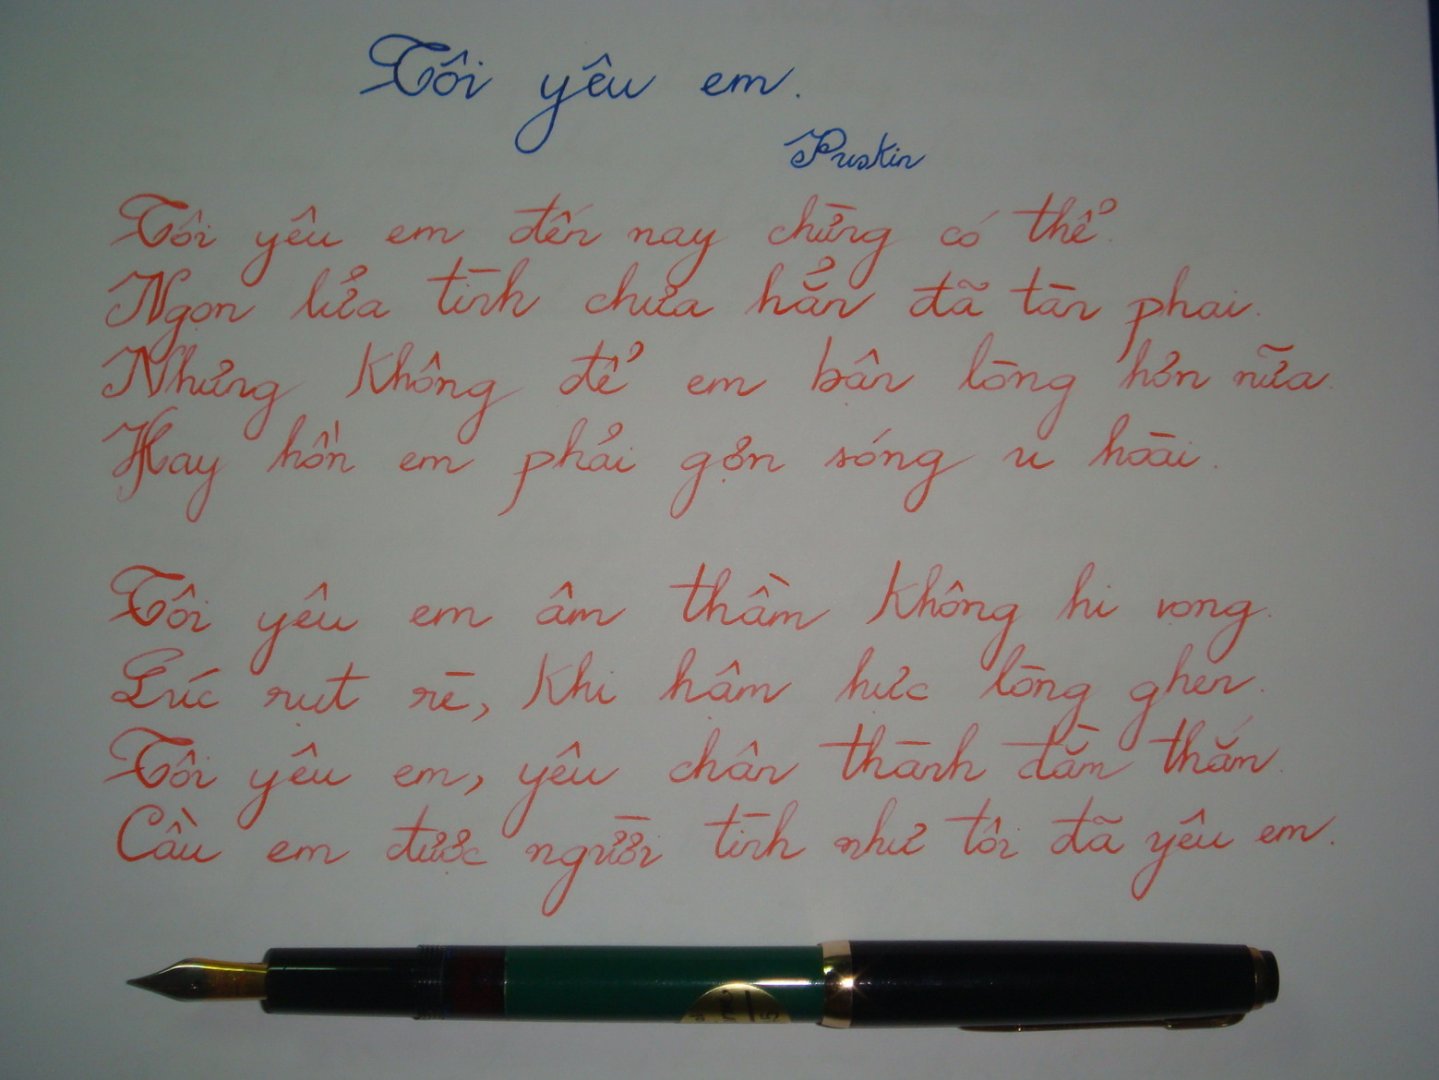 Tôi yêu em.
Puskin
Tôi yêu em đến nay chừng có thể.
Ngọn lửa tình chưa hẳn đã tàn phai.
Nhưng không để em bận lòng hơn nữa.
Hay hồn em phải gợn sóng u hoài.
Tôi yêu em âm thầm không hi vọng.
Lúc rụt rè, khi hậm hực lòng ghen.
Tôi yêu em, yêu chân thành đằm thắm.
Cầu em được người tình như tôi đã yêu em.